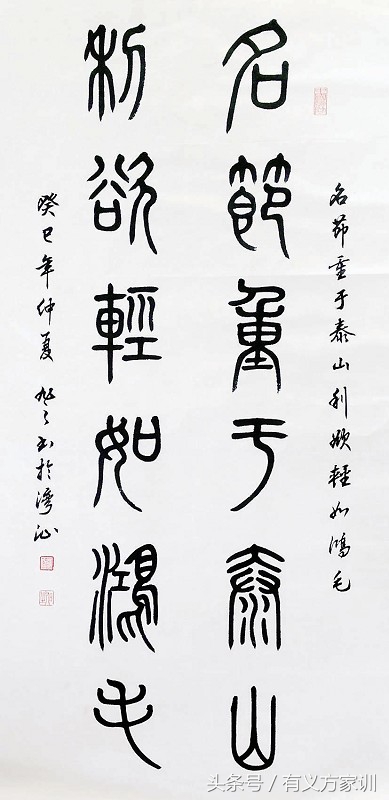 名節重于泰山利欲輕如鴻毛
名節重于泰山
利欲輕如鴻毛
癸巳年仲夏 書於灣沚
头条号 / 有义方家训